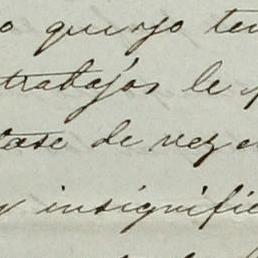 o que yo ten
trabajos le p
tase de vez e
y insignifi